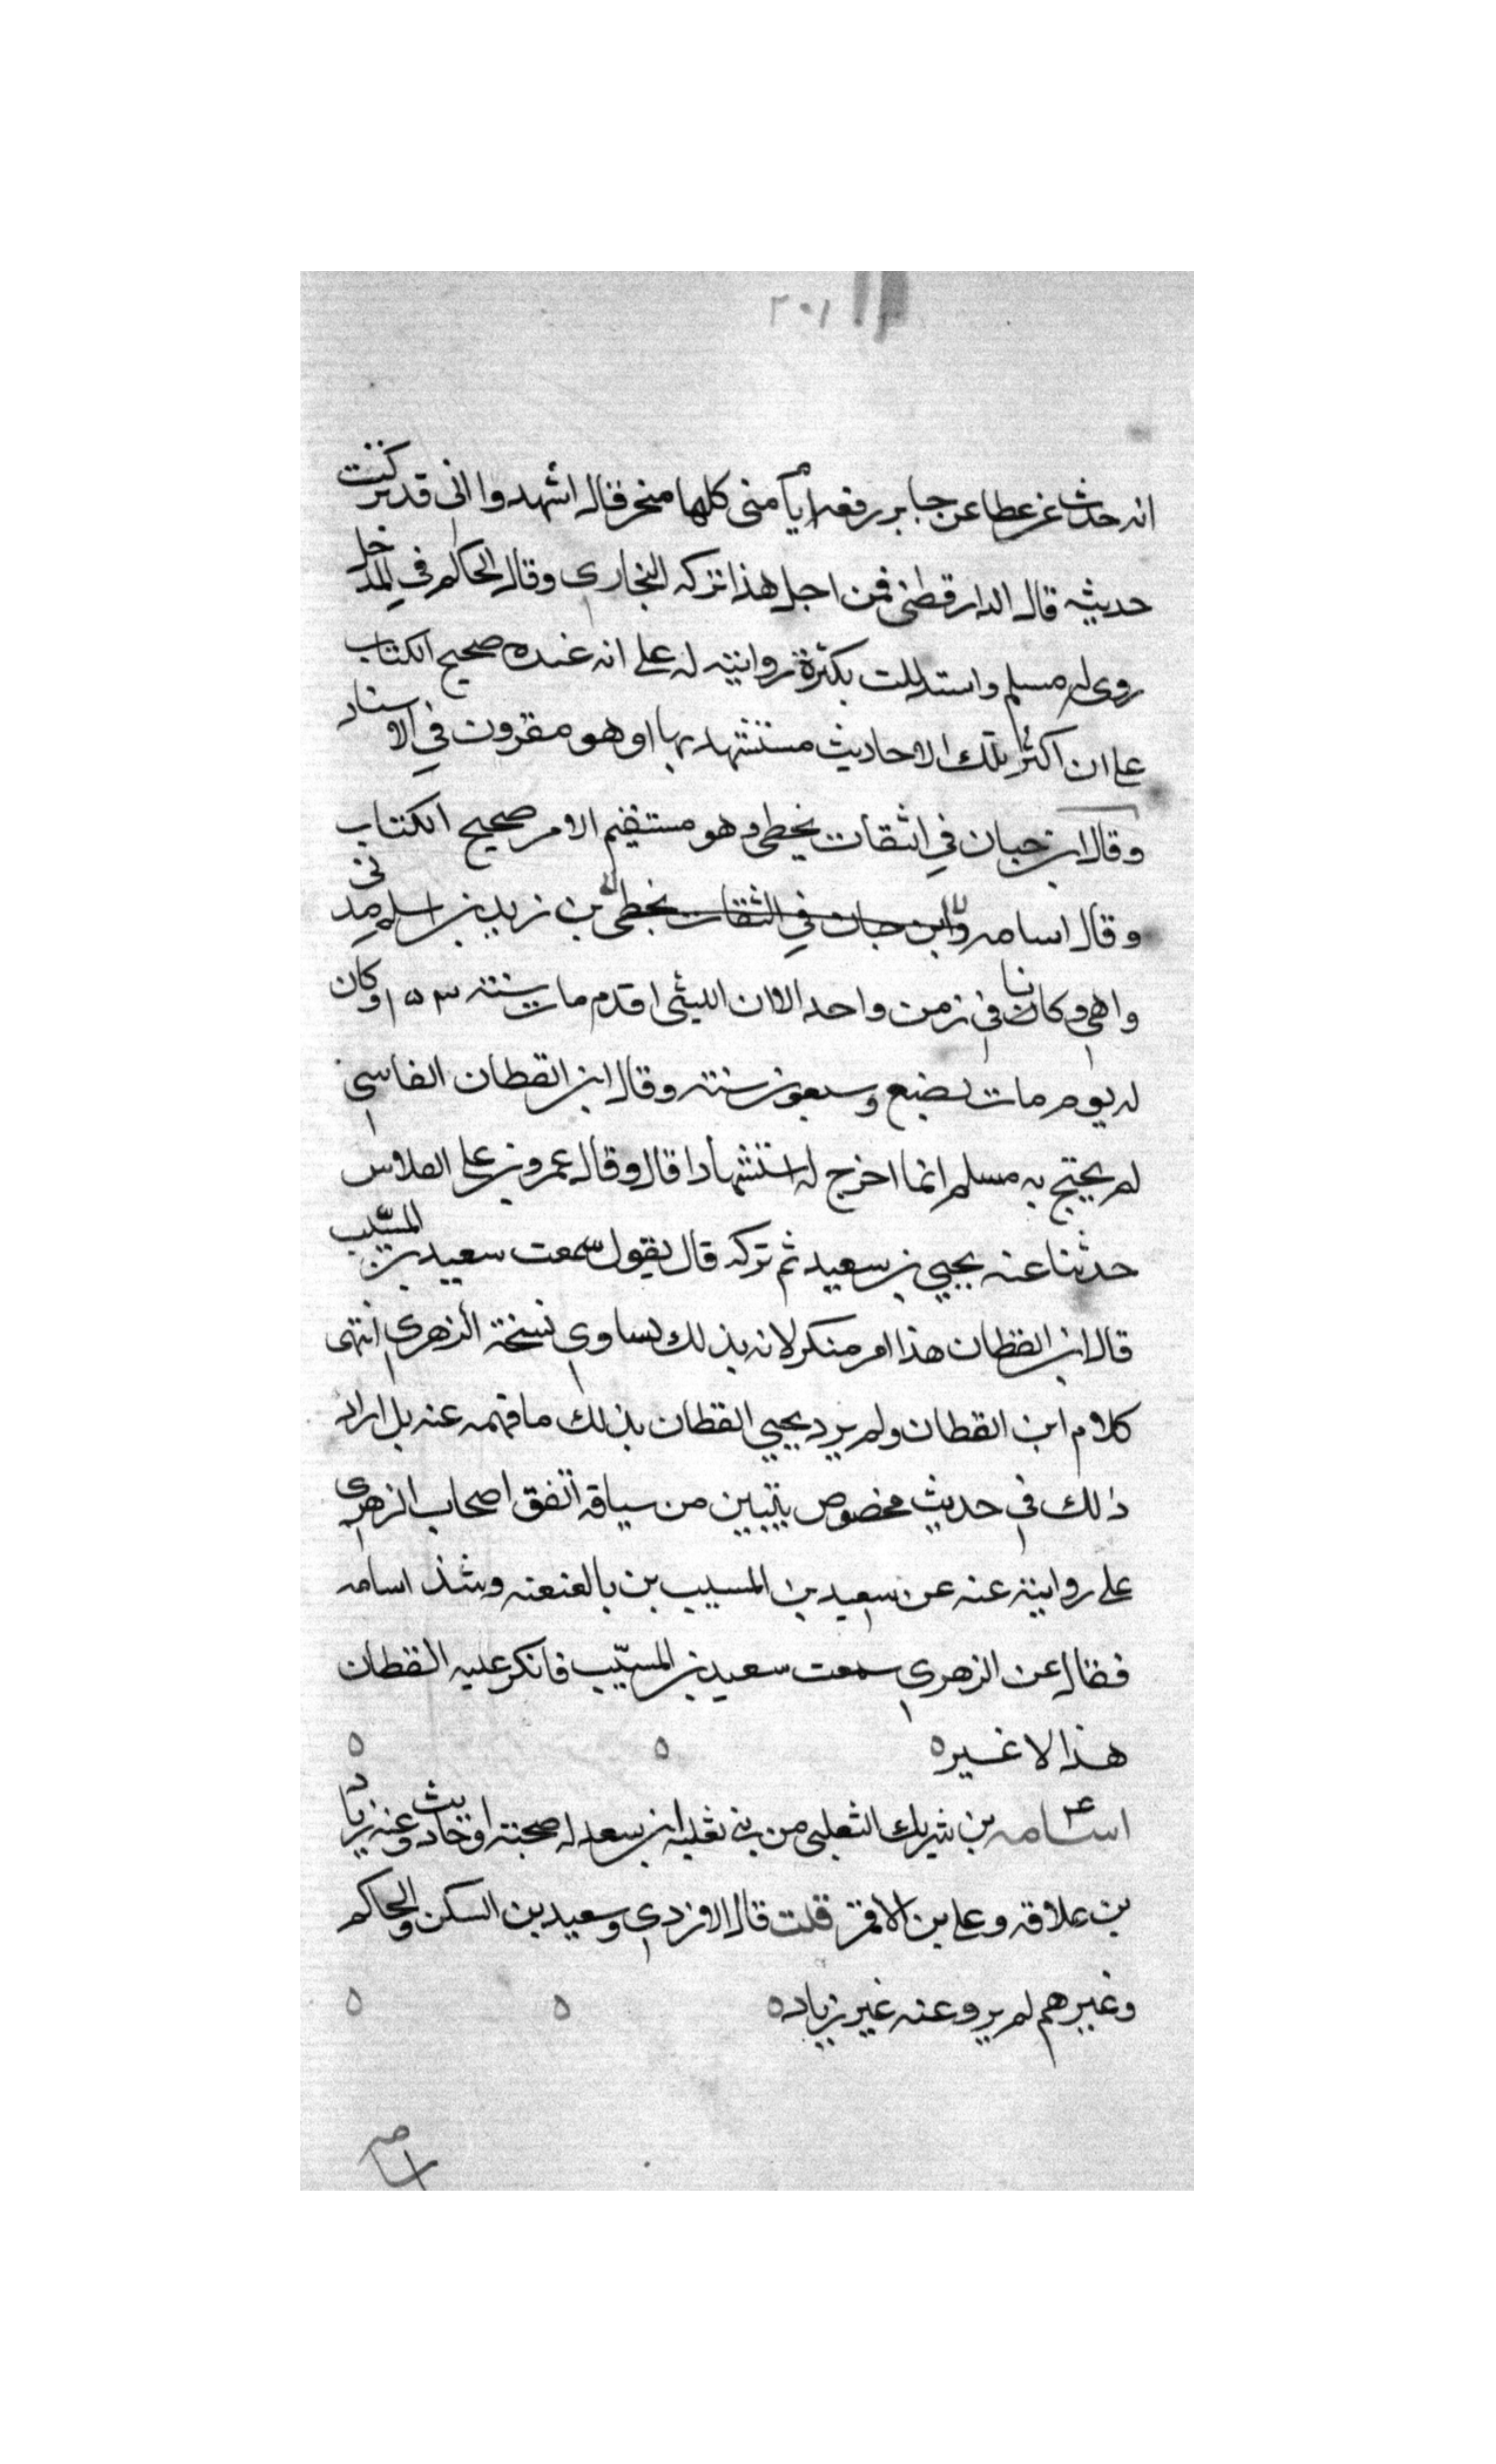 ٢٠١
انه حدث عن عطا عن جابر رفعه ايام منى كلها منحر فقال اشهدوا انى قد تركت
حديثه قال الدارقطنى فمن اجل هذا تركه البخارى وقال الحاكم في المدخل
روى له مسلم واستدللت بكثرة روايته له على انه عنده صحيح الكتاب
على ان اكثر تلك الاحاديث مستشهد بها او هو مقرون في الاسناد
وقال ابن حبان في الثقات يخطى وهو مستقيم الامر صحيح الكتاب
وقال اسامه وابن حبان في الثقات يخطى بن زيد بن اسلم مدنى
واهى وكانا فى زمن واحد الا ان الليثى اقدم مات سنة ١٥٣ وكان
له يوم مات بضع وسبعون سنة وقال ابن القطان الفاسى
لم يحتج به مسلم انما اخرج له استشهادا قال وقال عمرو بن على الفلاس
حدثنا عنه يحيي بن سعيد ثم تركه قال يقول سمعت سعيد بن المسيّب
قال ابن القطان هذا امر منكر لانه بذلك يساوى نسخة الزهرى انتهى
كلام ابن القطان ولم يرد يحيي القطان بذلك ما فهمه عنه بل اراد
ذلك فى حديث مخصوص يتبين من سياقه اتفق اصحاب الزهرى
على روايته عنه عن سعيد بن المسيب بن بالعنعنه وشذ اسامه
فقال عن الزهرى سمعت سعيد بن المسيّب فانكر عليه القطان
هذا لا غير ه ه ه
اسامه بن شريك الثعلبى من بنى ثعلبه بن سعد له صحبة واحاديث وعنه زياد
بن علاقه وعلى بن الاقمر قلت قال الازدى وسعيد بن السكن والحاكم
وغيرهم لم يرو عنه غير زياد ه ه ه